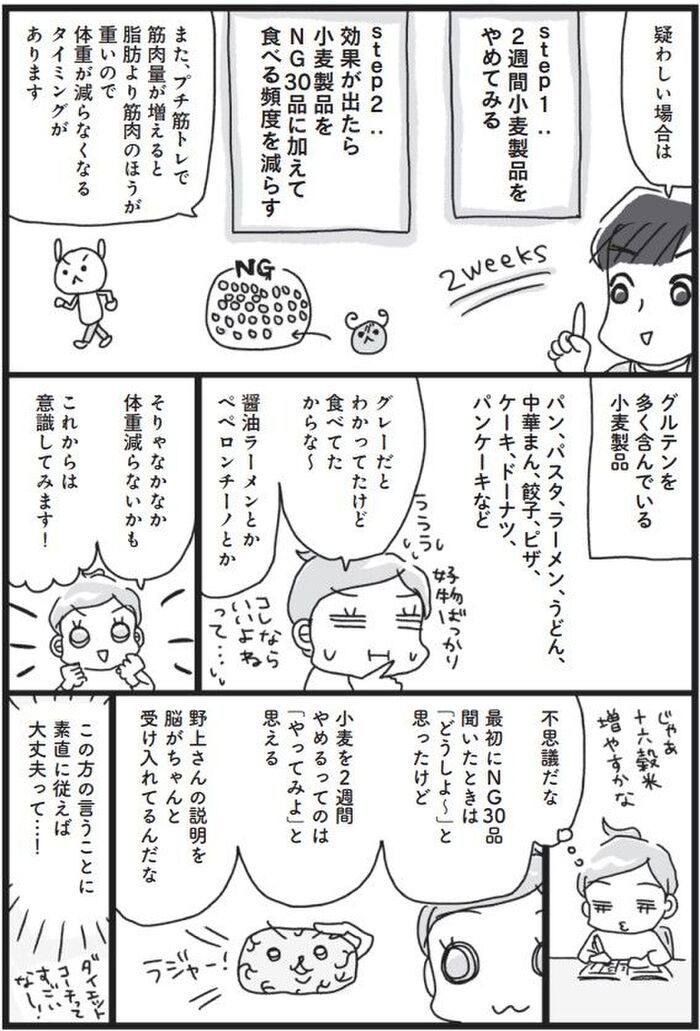 疑わしい場合は
step1：
2週間小麦製品を
やめてみる
step2：
効果が出たら
小麦製品を
NG30品に加えて
食べる頻度を減らす
また、プチ筋トレで
筋肉量が増えると
脂肪より筋肉のほうが
重いので
体重が減らなくなる
タイミングが
あります
2weeks
NG
グルテンを
多く含んでいる
小麦製品
パン、パスタ、ラーメン、うどん、
中華まん、餃子、ピザ、
ケーキ、ドーナツ、
パンケーキなど
グレーだと
わかってたけど
食べてた
からな〜
醤油ラーメンとか
ペペロンチーノとか
うううっ
好物ばっかり
コレなら
いいよね
って…
そりゃなかなか
体重減らないかも
これからは
意識してみます！
じゃあ
十六穀米
増やすかな
不思議だな
最初にNG30品
聞いたときは
「どうしよ〜」と
思ったけど
小麦を2週間
やめるってのは
「やってみよ」と
思える
野上さんの説明を
脳がちゃんと
受け入れてるんだな
ラジャー！
この方の言うことに
素直に従えば
大丈夫って…！
ダイエット
コーチって
すごい
なし！